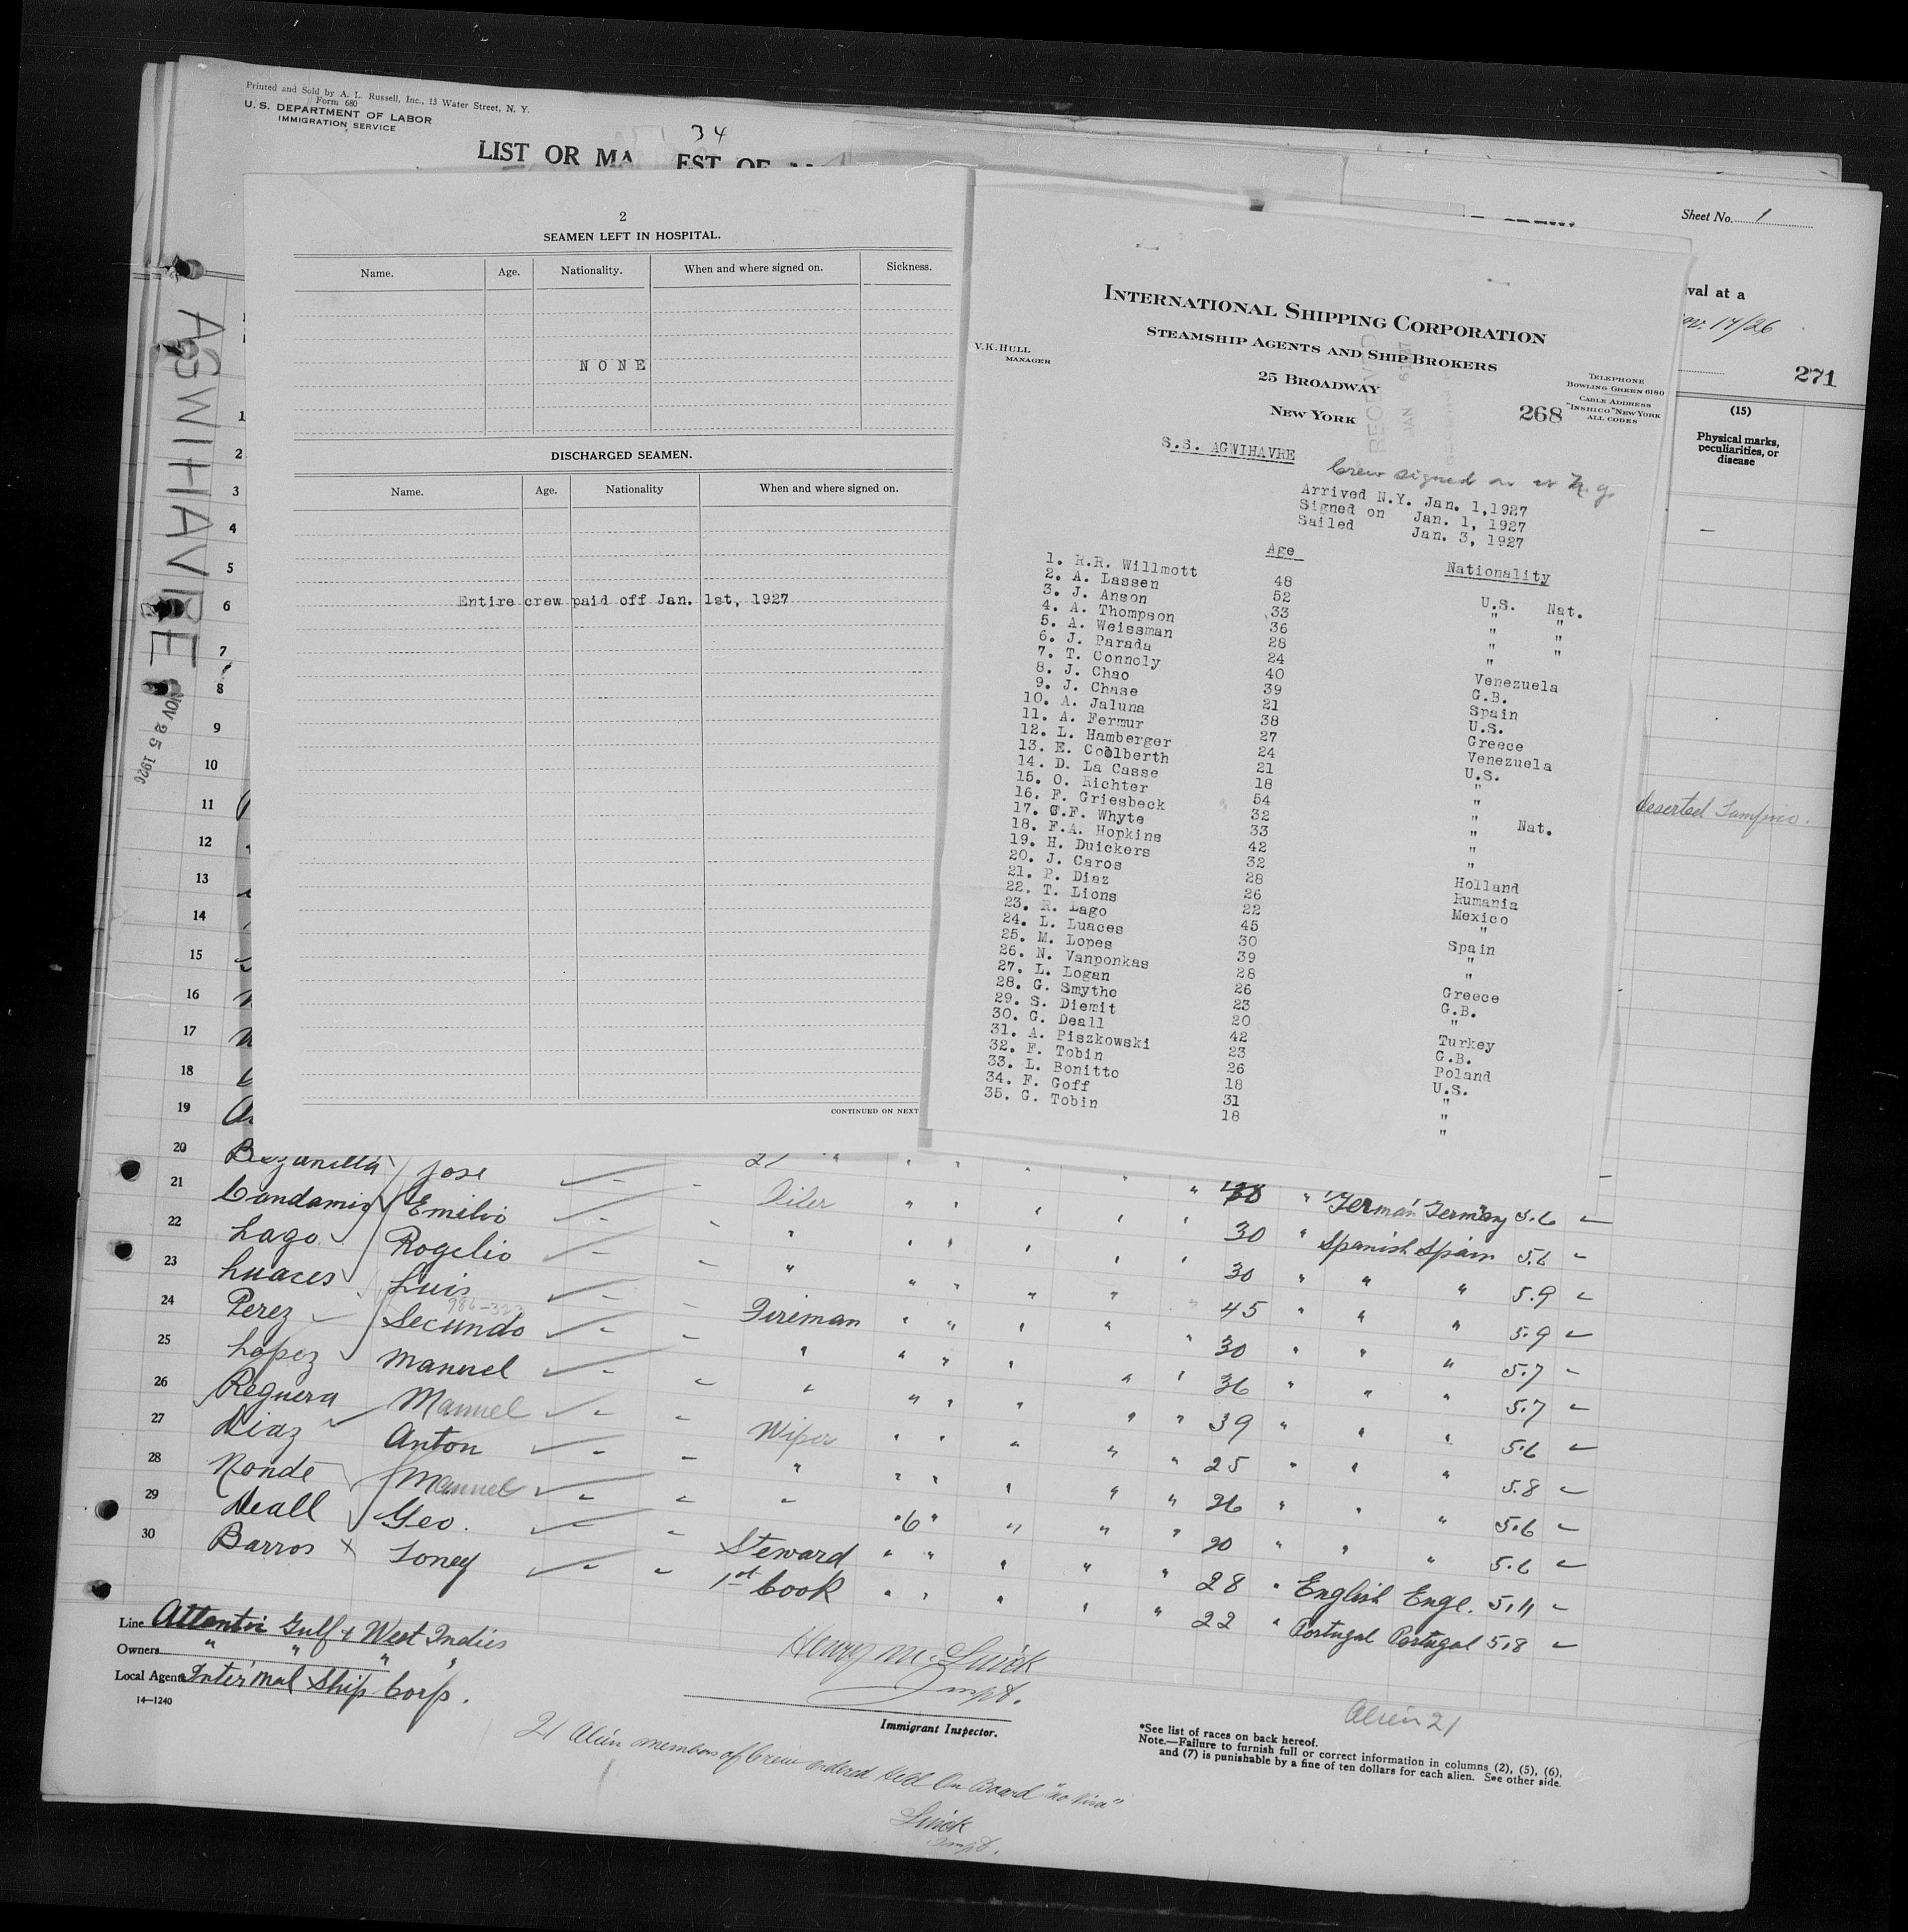 Printed and Sold by A. L. Russell, Inc., 13 Water Street, N. Y.
Form 680
U.S. DEPARTMENT OF LABOR
IMMIGRATION SERVICE
34
LIST OR MA EST OF
Sheet No. 1
val at a
17/26
271
(15)
Physical marks, peculiarities, or disease
deserted Tampico.
AGWIHAVRE
NOV 25 1926
2
SEAMEN LEFT IN HOSPITAL.
Name. Age. Nationality. When and where signed on. Sickness.
NONE
DISCHARGED SEAMEN.
Name. Age. Nationality When and where signed on.
Entire crew paid off Jan. 1st, 1927
CONTINUED ON NEXT
INTERNATIONAL SHIPPING CORPORATION
STEAMSHIP AGENTS AND SHIP BROKERS
V.K. HULL
MANAGER
25 BROADWAY
NEW YORK
TELEPHONE
BOWLING GREEN 6180
CABLE ADDRESS
"INSHICO" NEW YORK
ALL CODES
268
S.S. AGWIHAVRE
Crew signed on at N.Y.
Arrived N.Y. Jan. 1,1927
Signed on Jan. 1, 1927
Sailed Jan. 3, 1927
Age Nationality
1. R.R. Willmott 48 U.S. Nat.
2. A. Lassen 52 " "
3. J. Anson 33 " "
4. A. Thompson 36 " "
5. A. Weissman 28 "
6. J. Parada 24 Venezuela
7. T. Connoly 40 G.B.
8. J. Chao 39 Spain
9. J. Chase 21 U.S.
10. A. Jaluna 38 Greece
11. A. Fermur 27 Venezuela
12. L. Hamberger 24 U.S.
13. E. Coolberth 21 "
14. D. La Casse 18 "
15. O. Richter 54 " Nat.
16. F. Griesbeck 32 "
17. G.F. Whyte 33 "
18. F.A. Hopkins 42
19. H. Duickers 32 Holland
20. J. Caros 28 Rumania
21. P. Diaz 26 Mexico
22. T. Lions 22 "
23. R. Lago 45 Spain
24. L. Luaces 30 "
25. M. Lopes 39 "
26. N. Vanponkas 28 Greece
27. L. Logan 26 G.B.
28. G. Smythe 23 "
29. S. Diemit 20 Turkey
30. G. Deall 42 G.B.
31. A. Piszkowski 23 Poland
32. F. Tobin 26 U.S.
33. L. Bonitto 18 "
34. F. Goff 31 "
35. G. Tobin 18 "
1
2
3
4
5
6
7
8
9
10
11
12
13
14
15
16
17
18
19
20 Jose 38 " German Germany 5.6
21 Candamio Emilio Oiler " " 30 " Spanish Spain 5.6
22 Lago Rogelio " " " 30 " " " 5.9
23 Luaces Luis " " " 45 " " " 5.9
986-323
24 Perez Secundo Fireman " " 30 " " " 5.7
25 Lopez Manuel " " " 36 " " " 5.7
26 Reguera Manuel " " " 39 " " " 5.6
27 Diaz Anton Wiper " " 25 " " " 5.8
28 Conde Manuel " " " 26 " " " 5.6
29 Deall Geo. Steward " " 28 " English Engl. 5.11
30 Barros x Toney 1st Cook " " 22 " Portugal Portugal 5.8
Line Atlantic Gulf & West Indies
Owners " " " "
Local Agents Inter'nal Ship Corp.
14—1240
Immigrant Inspector.
Alien 21
*See list of races on back hereof.
Note.—Failure to furnish full or correct information in columns (2), (5), (6),
and (7) is punishable by a fine of ten dollars for each alien. See other side.
21 Alien members of Crew ordered Held On Board "no Visa"